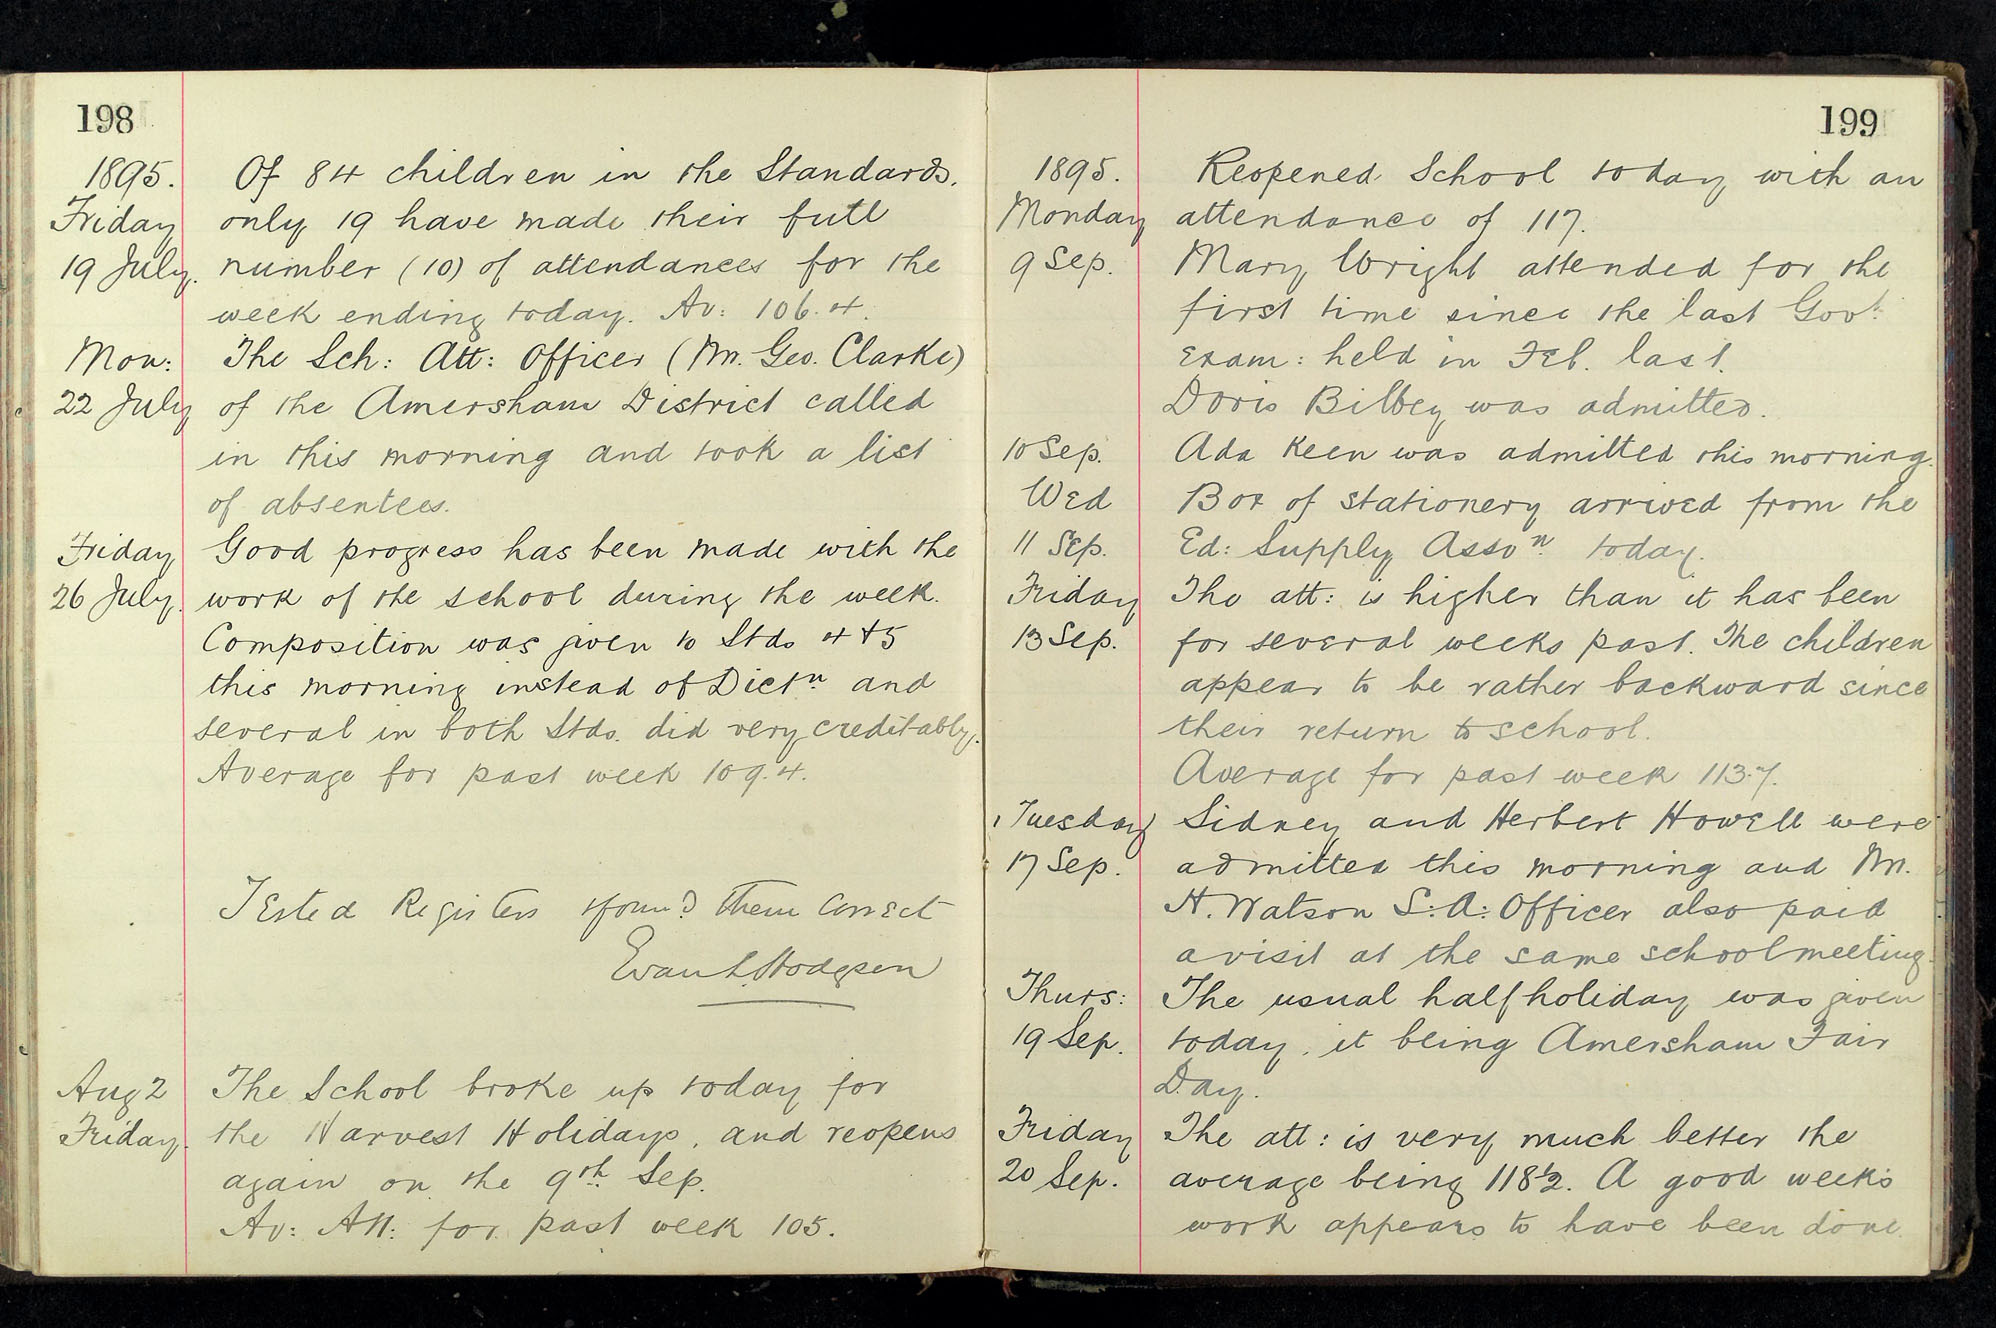 198
1895. Of 84 children in the Standards,
Friday only 19 have made their full
19 July. number (10) of attendances for the
week ending today. Av: 106.4.
Mon: The Sch: Att: Officer (Mr. Geo. Clarke)
22 July of the Amersham District called
in this morning and took a list
of absentees.
Friday Good progress has been made with the
26 July. work of the school during the week.
Composition was given to Stds 4 & 5
this morning instead of Dictn and
several in both Stds. did very creditably.
Average for past week 109.4.
Tested Registers & found them correct
Evan L. Hodgson
Aug 2 The School broke up today for
Friday. the Harvest Holidays, and reopens
again on the 9th Sep.
Av: Att: for past week 105.
199
1895. Reopened School today with an
Monday attendance of 117.
9 Sep. Mary Wright attended for the
first time since the last Govt:
Exam: held in Feb. last.
Doris Bilbey was admitted.
10 Sep. Ada Keen was admitted this morning.
Wed Box of stationery arrived from the
11 Sep. Ed: Supply Asson today.
Friday The att: is higher than it has been
13 Sep. for several weeks past. The children
appear to be rather backward since
their return to school.
Average for past week 113.7.
Tuesday Sidney and Herbert Howell were
17 Sep. admitted this morning and Mr.
H. Watson S: A: Officer also paid
a visit at the same school meeting.
Thurs: The usual half holiday was given
19 Sep. today, it being Amersham Fair
Day.
Friday The att: is very much better the
20 Sep. average being 118 1/2. A good week's
work appears to have been done.